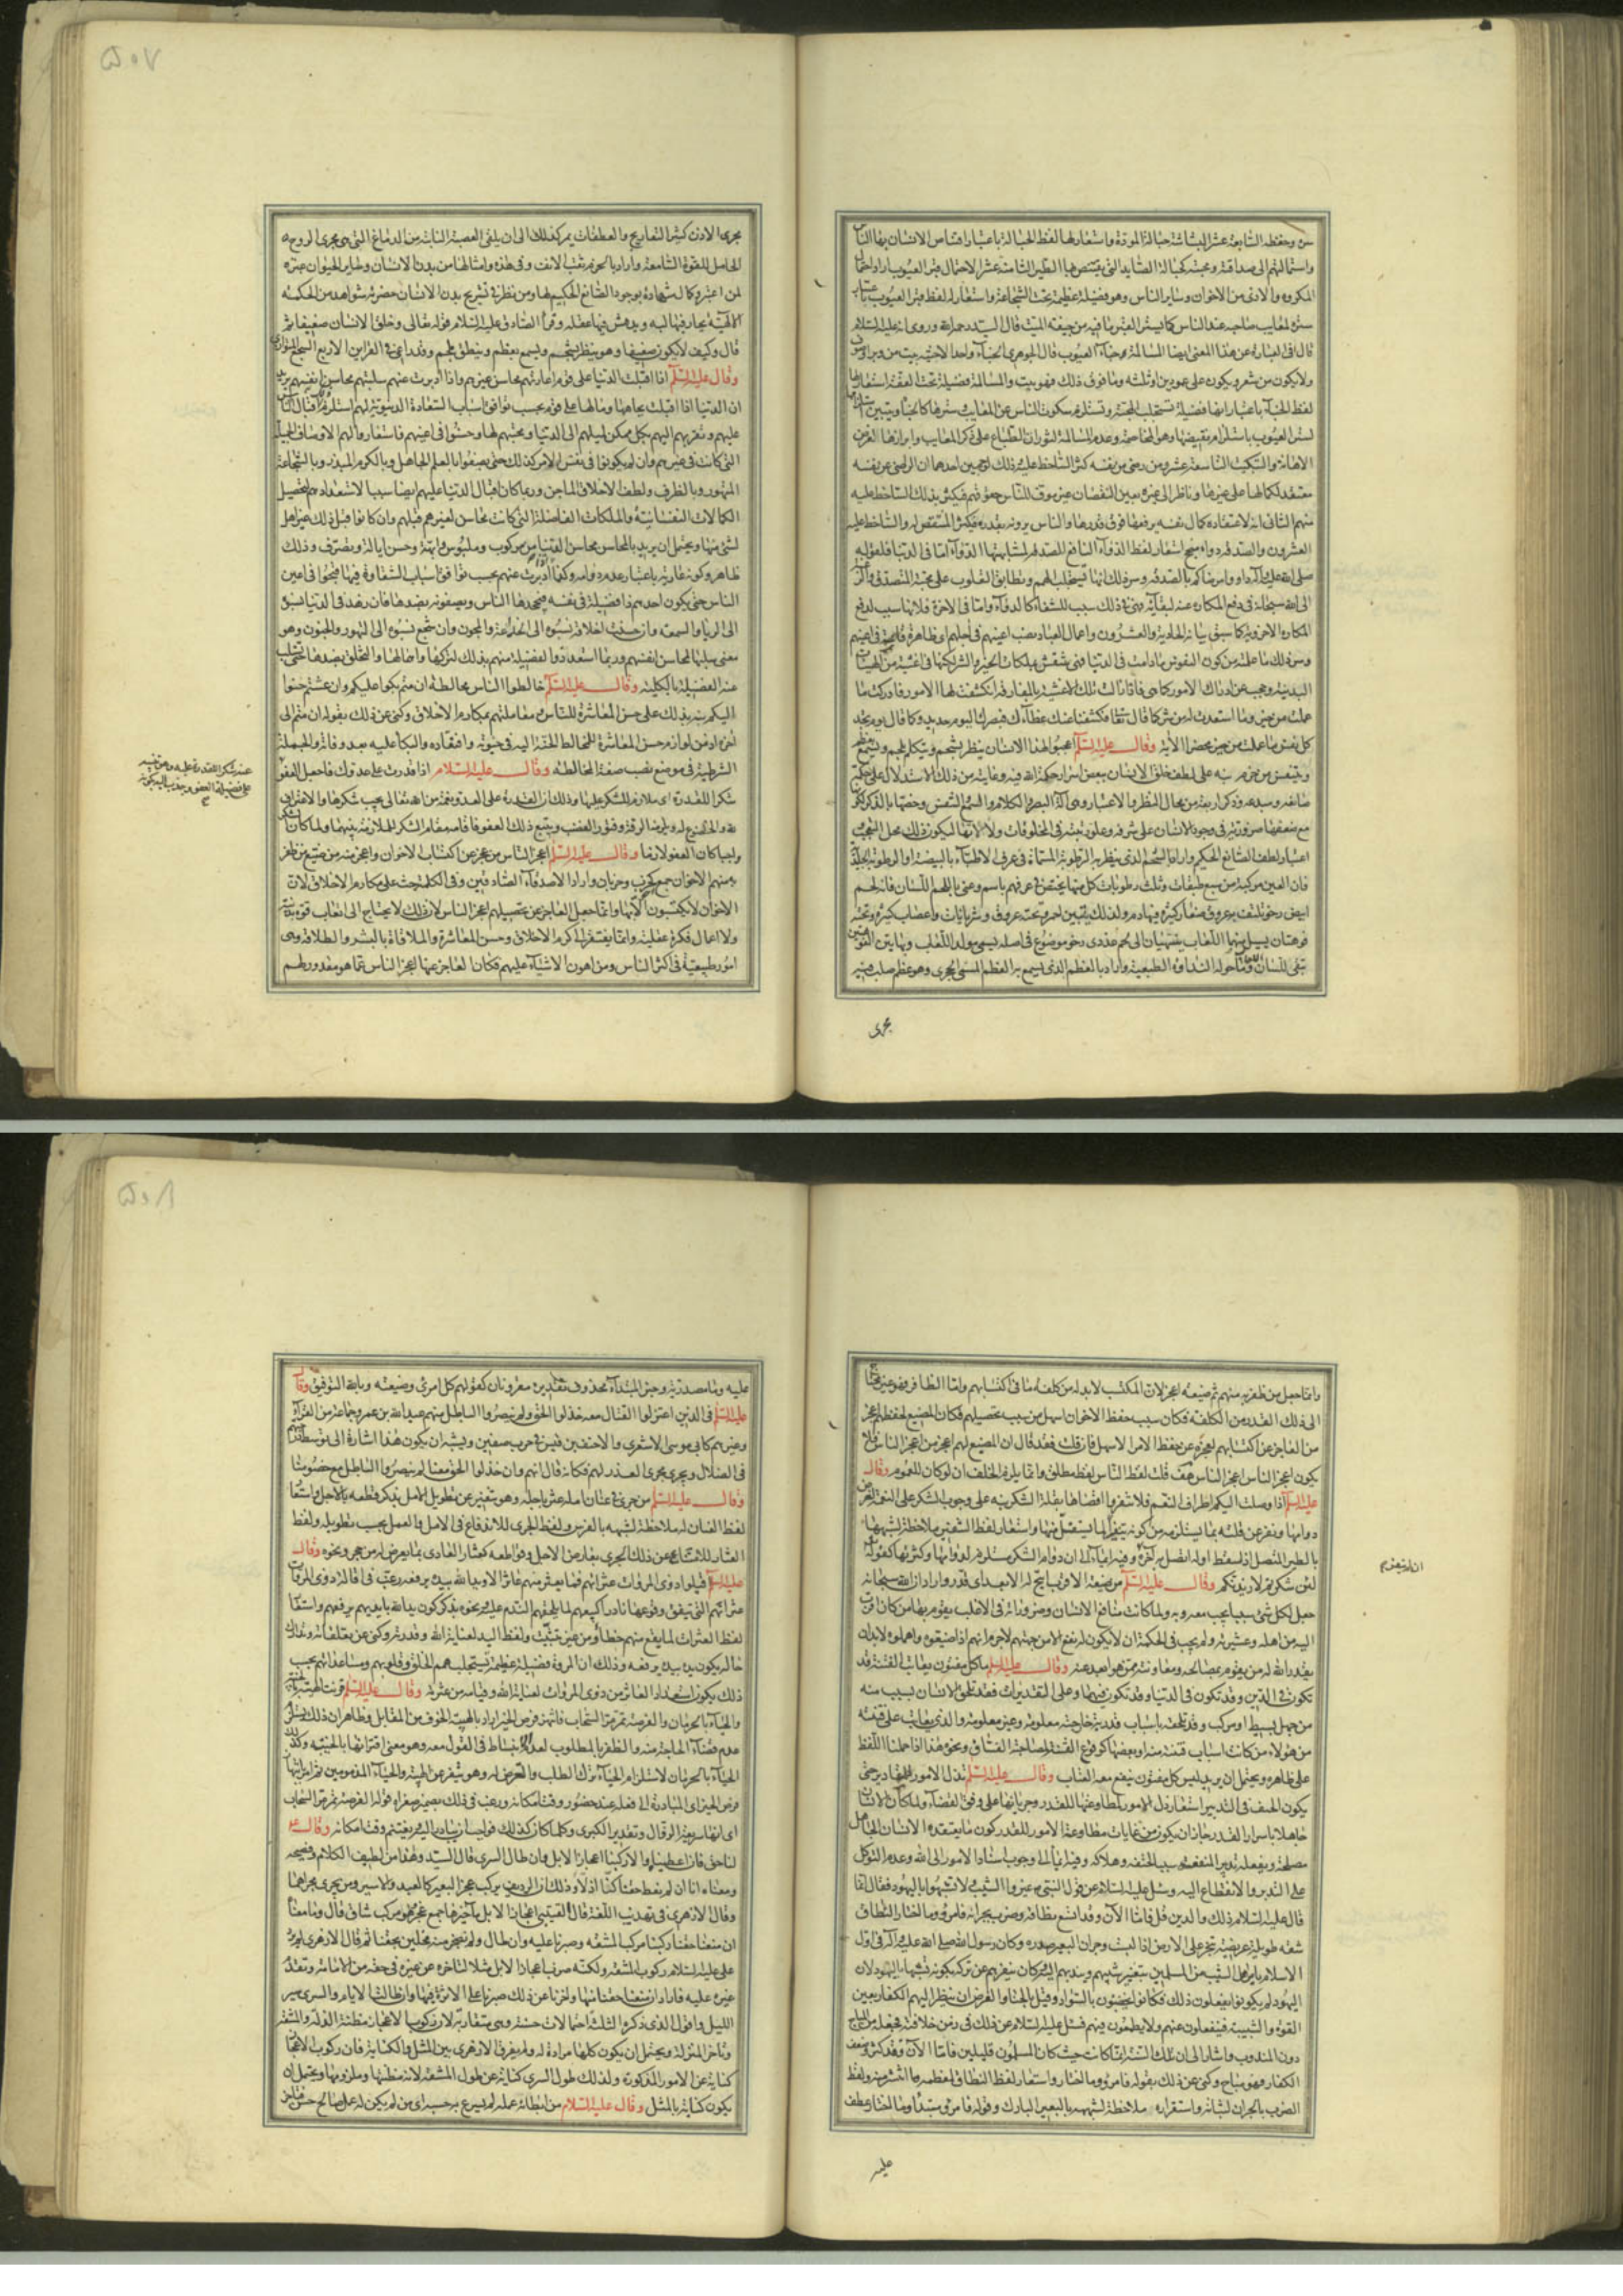 سره وحفظه السابعة عشر البشاشة حبالة المودة واستعار لها لفظ الحبالة باعتبار اقتناص الانسان بها الناس
واستمالتهم الى صداقته ومحبته كحبالة الصايد التي يقتنص بها الطير الثامنة عشر الاحتمال قبر العيوب اراد احتمال
المكروه والاذى من الاخوان وساير الناس وهو فضيلة عظيمة تحت الشجاعة واستعار له لفظ قبر العيوب باعتبار
ستره لمعايب صاحبه عند الناس كما يستر القبر ما فيه من جيفة الميت قال السيد رحمه الله وروى انه عليه السلام
قال في العبارة عن هذا المعنى ايضا المسالمة خباء العيوب قال الجوهري الخباء واحد الاخبية بيت من وبر او صوف
ولا يكون من شعر ويكون على عمودين او ثلثة وما فوق ذلك فهو بيت والمسالمة فضيلة تحت العفة استعار لها
لفظ الخباء باعتبار انها فضيلة تستجلب المحبة وتستلزم سكوت الناس عن المعايب وسترها كالخباء ويتبين استلزامها
لستر العيوب باستلزام نقيضها وهو المخاصمة وعدم المسالمة لثوران الطباع على ذكر المعايب وابرازها الغرض
الاهانة والتبكيت التاسعة عشر ومن رضي عن نفسه كثر الساخط عليه وذلك لوجهين احدهما ان الراضي عن نفسه
معتقد لكمالها على غيرها وناظر الى غيره بعين النقصان غير موف للناس حقوقهم فيكثر بذلك الساخط عليه
منهم الثاني انه لاعتقاده كمال نفسه يرفعها فوق قدرها والناس يرونه بقدره فيكثر المستنقص له والساخط عليه
العشرون والصدقة دواء منجح استعار لفظ الدواء النافع للصدقة لمشابهتها الدواء اما في الدنيا فلقوله
صلى الله عليه وآله داووا مرضاكم بالصدقة وسر ذلك انها تستجلب الهمم وتطابق القلوب على محبة المتصدق والرغبة
الى الله سبحانه في دفع المكاره عنه لبقائه فهي في ذلك سبب للشفاء كالدواء واما في الاخرة فلانها سبب لدفع
المكاره الاخروية كما سبق بيانه الحادية والعشرون واعمال العباد نصب اعينهم في آجلهم اي ظاهرة قائمة في اعينهم
وسر ذلك ما علمته من كون النفوس ما دامت في الدنيا فهي تنتقش بملكات الخير والشر لكنها في اغشية من الهيئات
البدنية وحجب عن ادراك الامور كما هي فاذا زالت تلك الاغشية بالمفارقة انكشفت لها الامور فادركت ما
عملت من خير وما استعدت له من شر كما قال تعالى فكشفنا عنك غطاءك فبصرك اليوم حديد وكما قال يوم تجد
كل نفس ما عملت من خير محضرا الآية وقال عليه السلام اعجبوا لهذا الانسان ينظر بشحم ويتكلم بلحم ويسمع بعظم
ويتنفس من خرم نبه على لطف خلق الانسان ببعض اسرار حكمة الله فيه وغايته من ذلك الاستدلال على حكمة
صانعه ومبدعه وذكر اربعة من محال النظر والاعتبار وهي آلة البصر والكلام والسمع والتنفس وخصها بالذكر لكونها
مع ضعفها ضرورية في وجود الانسان على شرفه وعلو رتبته في المخلوقات ولا لانها ليكون ذلك محل التعجب
اعتبار لطف الصانع الحكيم واراد بالشحم الذي ينظر به الرطوبة المسماة في عرف الاطباء بالبيضية او الرطوبة الجليدية
فان العين مركبة من سبع طبقات وثلث رطوبات كل منها يختص في عرفهم باسم وعنى باللحم اللسان فانه لحم
ابيض رخو تلتف به عروق صغار كثيرة فيها دم ولذلك يتبين احمر وتحته عروق وشريانات واعصاب كثيرة وتحته
فوهتان يسيل منهما اللعاب ينتهيان الى لحم غددي رخو موضوع في اصله يسمى مولد اللعاب وبهاتين الفوهتين
تبقى للسان وما حوله النداوة الطبيعية واراد بالعظم الذي يسمع به العظم المسمى الحجري وهو عظم صلب فيه
مجرى
٥٠٧
مجرى الاذن كثير التعاريج والعطفات يمر كذلك الى ان يلقى العصبة النابتة من الدماغ التي هي مجرى الروح
الحامل للقوة السامعة واراد بالخرم ثقب الانف وفي هذه وامثالها من بدن الانسان وساير الحيوان عبرة
لمن اعتبر وكمال شهادة بوجود الصانع الحكيم لها ومن نظر في تشريح بدن الانسان حضرته شواهد من الحكمة
الالهية يحار فيها لبه ويدهش فيها عقله وقرأ الصادق عليه السلام قوله تعالى وخلق الانسان ضعيفا ثم
قال وكيف لا يكون ضعيفا وهو ينظر بشحم ويسمع بعظم وينطق بلحم وقد راعى في القراين الاربع السجع المتوازي
وقال عليه السلام اذا اقبلت الدنيا على قوم اعارتهم محاسن غيرهم واذا ادبرت عنهم سلبتهم محاسن انفسهم يريد
ان الدنيا اذا اقبلت بجاهها ومالها على قوم بحسب توافق اسباب السعادة الدنيوية لهم استلزم اقبال الناس
عليهم وتقربهم اليهم بكل ممكن لميلهم الى الدنيا ومحبتهم لها وحسنوا في اعينهم فاستعاروا لهم الاوصاف الجميلة
التي كانت في غيرهم وان لم يكونوا في نفس الامر كذلك حتى يصفوا بالعلم الجاهل وبالكرم المبذر وبالشجاعة
المتهور وبالظرف ولطف الاخلاق الماجن وربما كان اقبال الدنيا عليهم ايضا سببا لاستعدادهم لتحصيل
الكمالات النفسانية والملكات الفاضلة التي كانت محاسن لغيرهم قبلهم وان كانوا قبل ذلك غير اهل
لشئ منها ويحتمل ان يريد بالمحاسن محاسن القنيات من مركوب وملبوس وابهة وحسن ايالة وتصرف وذلك
ظاهر وكونه عارية باعتبار عدم دوامه وكذا اذا ادبرت عنهم بحسب توافق اسباب الشقاوة فيها قبحوا في اعين
الناس حتى يكون احدهم ذا فضيلة في نفسه فيجحدها الناس ويصفونه بضدها فان زهد في الدنيا نسبوه
الى الريا والسمعة وان حسنت اخلاقه نسبوه الى الخلاعة والمجون وان شجع نسبوه الى التهور والجنون وهو
معنى سلبها محاسن انفسهم وربما استعد ذو الفضيلة منهم بذلك لتركها واهمالها والتخلق بضدها حتى يسلب
عنه الفضيلة بالكلية وقال عليه السلام خالطوا الناس مخالطة ان متم بكوا عليكم وان عشتم حنوا
اليكم نبه بذلك على حسن المعاشرة للناس ومعاملتهم بمكارم الاخلاق وكنى عن ذلك بقوله ان متم الى
آخره اذ من لوازم حسن المعاشرة للمخالط الحنة اليه في حيوته وافتقاده والبكاء عليه بعد وفاته والجملة
الشرطية في موضع نصب صفة المخالطة وقال عليه السلام اذا قدرت على عدوك فاجعل العفو
شكرا للقدرة اي ملازم للشكر عليها وذلك ان القدرة على العدو نعمة من الله تعالى يجب شكرها والاعتراف
به والخضوع له ويلزمه الرقة وفتور الغضب ويتبع ذلك العفو فاقامه مقام الشكر للملازمة بينهما ولما كان الشكر
واجبا كان العفو لازما وقال عليه السلام اعجز الناس من عجز عن اكتساب الاخوان واعجز منه من ضيع من ظفر
به منهم الاخوان جمع اخ كخرب وخربان واراد الاصدقاء الصادقين وفي الكلمة حث على مكارم الاخلاق لان
الاخوان لا يكتسبون الا بها وانما جعل العاجز عن تحصيلهم اعجز الناس لان ذلك لا يحتاج الى اتعاب قوة بدنية
ولا اعمال فكرة عقلية وانما يفتقر الى كرم الاخلاق وحسن المعاشرة والملاقاة بالبشر والطلاقة وهي
امور طبيعية في اكثر الناس ومن اهون الاشياء عليهم فكان العاجز عنها اعجز الناس عما هو مقدور لهم
عنه شكرا للقدرة عليه وهو تنبيه
على فضيلة العفو وجذب اليه بكونه
وانما جعل من ظفر به منهم ثم ضيعه اعجز لان المكتسب لا بد له من كلفة ما في اكتسابهم واما الظافر فهو غير محتاج
الى ذلك القدر من الكلفة فكان سبب حفظ الاخوان اسهل من سبب تحصيلهم فكان المضيع لحفظهم اعجز
من العاجز عن اكتسابهم لعجزه عن حفظ الامر الاسهل فان قلت فقد قال ان المضيع لهم اعجز من اعجز الناس فلا
يكون اعجز الناس اعجز الناس هف قلت لفظ الناس لفظ مطلق وانما يلزم الخلف ان لو كان للعموم وقال
عليه السلام اذا وصلت اليكم اطراف النعم فلا تنفروا اقصاها بقلة الشكر نبه على وجوب الشكر على النعم
دوامها ونفر عن قلته بما يستلزمه من كونه تنفيرا لما يستقبل منها واستعار لفظ التنفير ملاحظة لشبهها
بالطير المتصل اذا سقط اوله اتصل به آخره وفيه ايماء الى ان دوام الشكر مستلزم لدوامها وكثرتها كقوله تعالى
لئن شكرتم لازيدنكم وقال عليه السلام من ضيعه الاقرب اتيح له الابعد اي قدر واراد ان الله سبحانه
جعل لكل شئ سببا يجب معه وبه ولما كانت منافع الانسان وضروراته في الاغلب يقوم بها من كان اقرب
اليه من اهله وعشيرته ولم يجب في الحكمة ان لا يكون له نفع الا من جهتهم لا جرم انهم اذا ضيعوه واهملوه لا بد ان
يقدر الله له من يقوم بمصالحه ومعاونته ممن هو ابعد عنه وقال عليه السلام ما كل مفتون يعاتب الفتنة قد
تكون في الدين وقد تكون في الدنيا وقد تكون فيهما وعلى التقديرات فقد تلحق الانسان بسبب منه
من جهل بسيط او مركب وقد تلحقه باسباب قدرية خارجة معلومة وغير معلومة والذي يعاتب على فتنته
من هؤلاء من كانت اسباب فتنته منه او بعضها كوقوع الفتنة لمصاحبة الفساق ونحوه هذا اذا حملنا اللفظ
على ظاهره ويحتمل ان يريد ليس كل مفتون ينفع معه العتاب وقال عليه السلام تذل الامور للمقادير حتى
يكون الحتف في التدبير استعار ذل الامور لمطاوعتها للقدر وجريانها على وفق القضاء ولما كان الانسان
جاهلا باسرار القدر جاز ان يكون من غايات مطاوعة الامور للقدر كون ما يعتقده الانسان الجاهل
مصلحة ويفعله تدبير المنفعته سببا لحتفه وهلاكه وفيه ايماء الى وجوب اسناد الامور الى الله وعدم التوكل
على التدبير والانقطاع اليه وسئل عليه السلام عن قول النبي ص غيروا الشيب ولا تشبهوا باليهود فقال انما
قال عليه السلام ذلك والدين قل فاما الآن وقد اتسع نطاقه وضرب بجرانه فامرؤ وما اختار النطاق
شقة طويلة عريضة تجر على الارض اذا لبست وجران البعير صدره وكان رسول الله صلى الله عليه وآله في اول
الاسلام يأمر اهل الشيب من المسلمين بتغيير شيبهم ويندبهم اليه وكان ينفرهم عن تركه بكونه تشبها باليهود لان
اليهود لم يكونوا يفعلون ذلك فكانوا يخضبون بالسواد وقيل بالحنا والغرض ان ينظر اليهم الكفار بعين
القوة والشبيبة فينفعلون عنهم ولا يطمعون فيهم فسئل عليه السلام عن ذلك في زمن خلافته فجعله من المباح
دون المندوب واشار الى ان تلك السنة انما كانت حيث كان المسلمون قليلين فاما الآن وقد كثروا وضعف
الكفار فهو مباح وكنى عن ذلك بقوله فامرؤ وما اختار واستعار لفظ النطاق لمعظمه وما انتشر منه ولفظ
الضرب بالجران لثباته واستقراره ملاحظة لشبهه بالبعير البارك وقوله فامرؤ مبتدأ وما اختار عطف
عليه
٥٠٨
عليه وما مصدرية وخبر المبتدأ محذوف تقديره مقرونان كقولهم كل امرئ وضيعته وبالله التوفيق وقال
عليه السلام في الذين اعتزلوا القتال معه خذلوا الحق ولم ينصروا الباطل منهم عبد الله بن عمر وجماعة من القراء
وغيرهم كابي موسى الاشعري والاحنف بن قيس في حرب صفين ويشبه ان يكون هذا اشارة الى توسطهم
في الضلال ويجري مجرى العذر لهم فكانه قال انهم وان خذلوا الحق معنا لم ينصروا الباطل مع خصومنا
وقال عليه السلام من جرى في عنان امله عثر باجله وهو تنفير عن تطويل الامل بذكر قطعه بالاجل واستعار
لفظ العنان له ملاحظة لشبهه بالفرس ولفظ الجري للاندفاع في الامل والعمل بحسب تطويله ولفظ
العثار للامتناع عن ذلك الجري بعارض الاجل وقواطعه كعثار العادي بما يعرض له من حجر ونحوه وقال
عليه السلام اقيلوا ذوي المروات عثراتهم فما يعثر منهم عاثر الا ويد الله بيده يرفعه رغب في اقالة ذوي المروات
عثراتهم التي تتفق وقوعها نادرا
لفظ العثرات لما يقع منهم خطأ ومن غير تثبت ولفظ اليد لعناية الله وقدرته وكنى عن
حاله بكون يده بيده يرفعه وذلك ان المروة فضيلة عظيمة تستجلب همم الخلق وقلوبهم ومساعداتهم بحسب
ذلك يكون استعداد العاثر من ذوي المروات لعناية الله وقيامه من عثرته وقال عليه السلام قرنت الهيبة بالخيبة
والحياء بالحرمان والفرصة تمر مر السحاب فانتهزوا فرص الخير اراد بالهيبة الخوف من المقابل وظاهر ان ذلك يستلزم
عدم قضاء الحاجة منه والظفر بالمطلوب لعدم الانبساط في القول معه وهو معنى اقترانها بالخيبة وكذلك
الحياء بالحرمان لاستلزام الحياء ترك الطلب والتعرض له وهو تنفير عن الهيبة والحياء المذمومين ثم امر بانتهاز
فرص الخير اي المبادرة الى فعله عند حضور وقت امكانه ورغب في ذلك بضمير صغراه قوله الفرصة تمر مر السحاب
اي انها سريعة الزوال وتقدير الكبرى وكلما كان كذلك فواجب ان يبادر اليه ويغتنم وقت امكانه وقال ع
لنا حق فان اعطيناه والا ركبنا اعجاز الابل وان طال السرى قال السيد وهذا من لطيف الكلام وفصيحه
ومعناه انا ان لم نعط حقنا كنا اذلاء وذلك ان الرديف يركب عجز البعير كالعبد والاسير ومن يجري مجراهما
وقال الازهري في تهذيب اللغة قال القتيبي اعجاز الابل مآخيرها جمع عجز وهو مركب شاق قال ومعناه
ان منعنا حقنا ركبنا مركب المشقة وصبرنا عليه وان طال ولم نضجر منه مخلين بحقنا ثم قال الازهري لم يرد
علي عليه السلام ركوب المشقة ولكنه ضرب اعجاز الابل مثلا لتأخره عن غيره في حقه من الامامة وتقدم
غيره عليه فاراد ان منعنا حقنا منها واخرنا عن ذلك صبرنا على الاثرة فيها وان طالت الايام والسرى سير
الليل واقول الذي ذكروه الثلث احتمالات حسنة وهي متقاربة لان ركوب الاعجاز مظنة الذلة والمشقة
وتأخر المنزلة ويحتمل ان يكون كلها مرادة له ولم يفرق الازهري بين المثل والكناية فان ركوب الاعجاز
كناية عن الامور المذكورة ولذلك طول السرى كناية عن طول المشقة لانه مظنتها وملزومها ويحتمل ان
يكون كناية بالمثل وقال عليه السلام من ابطأ به عمله لم يسرع به حسبه اي من لم يكن له عمل صالح حتى